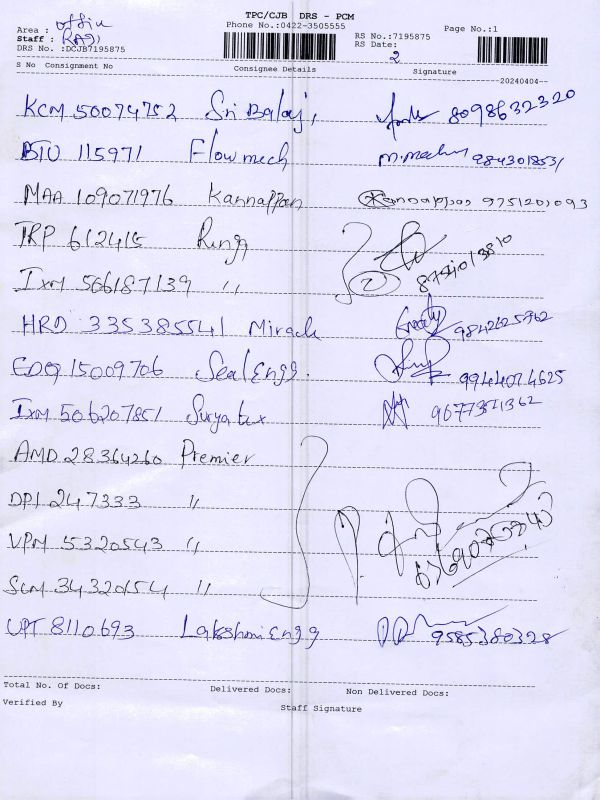 TPC/CJB DRS - PCM
Phone No.:0422-3505555
Area : office
Staff : RAGI
DRS No. :DCJB7195875
RS No.:7195875
RS Date:
2
Page No.:1
S No Consignment No Consignee Details Signature
20240404--
KCM 50074752 Sri Balaji 8098632320
BTU 115971 Flowmech 984301853
MAA 109071976 Kannappan Kannappan 9751201093
TRP 612415
IXM 566187139 "
HRD 335385541 Miracle 9842625962
EDQ 15009706 Seal Engg. 9944074625
IXM 506207851 Suryatex 9677351362
AMD 28364260 Premier
DPI 247333 "
VPM 5320543 "
SCM 34320154 "
UPT 8110693 Lakshmi Engg 9585380328
Total No. Of Docs: Delivered Docs: Non Delivered Docs:
Verified By Staff Signature